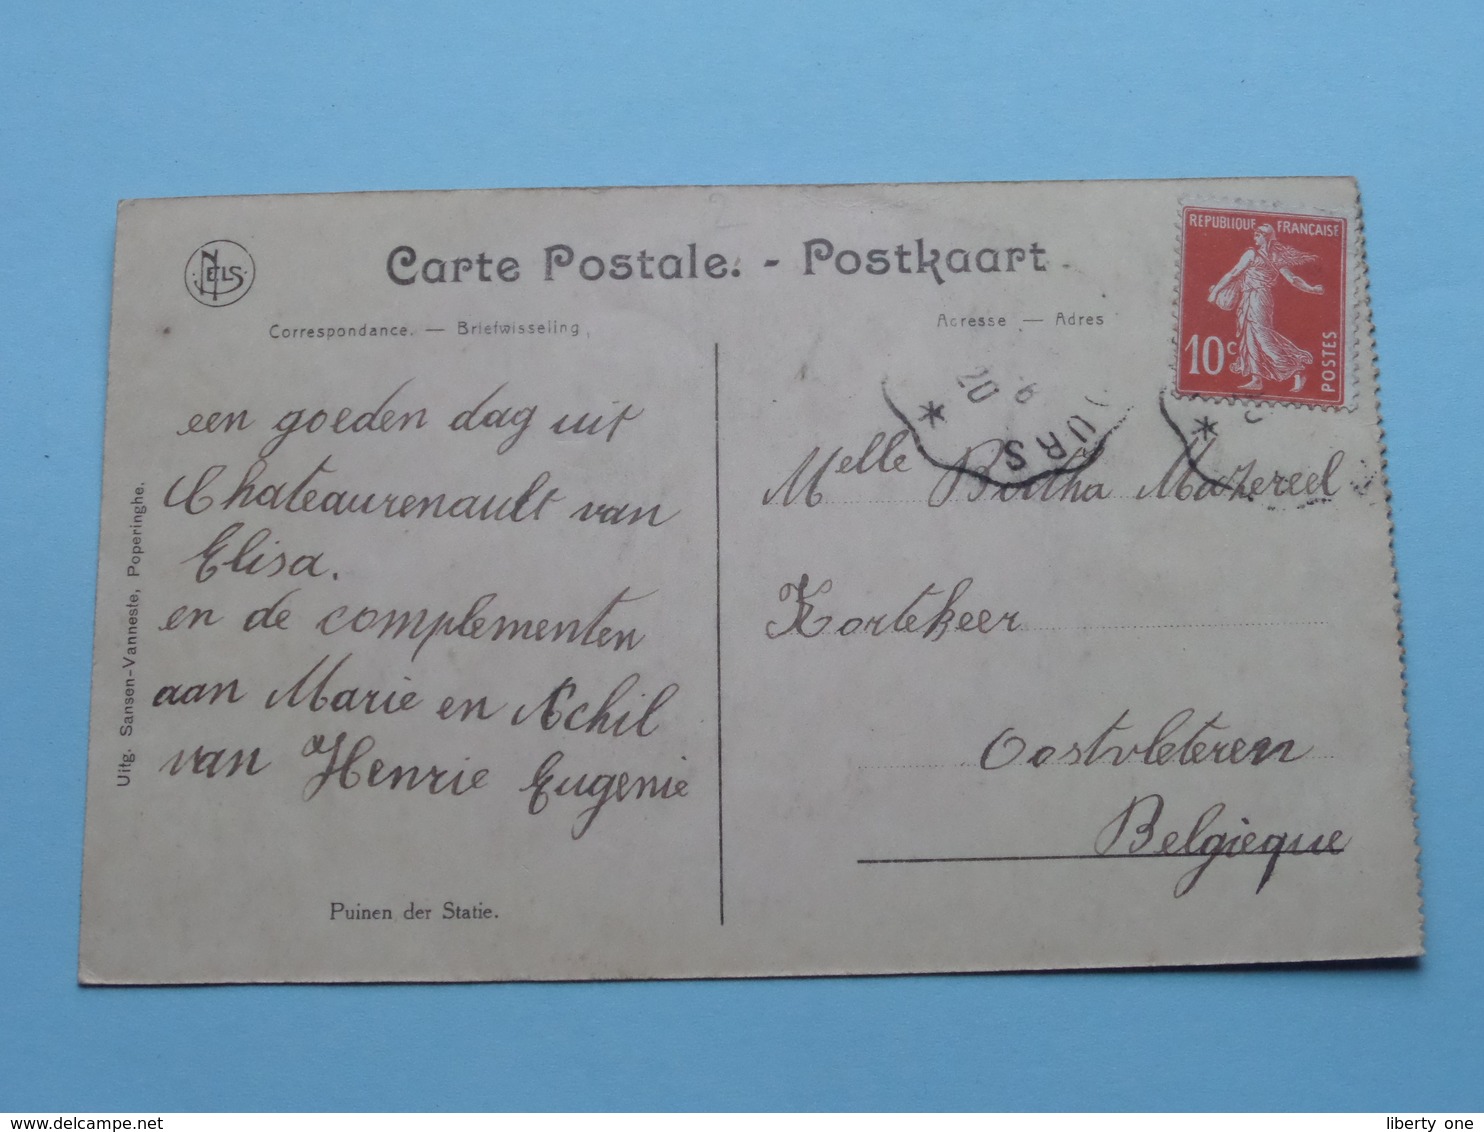 NELS
Carte Postale. - Postkaart
Correspondance. — Briefwisseling
Adresse — Adres
REPUBLIQUE FRANÇAISE
10c
POSTES
20 6
URS
een goeden dag uit
Chateaurenault van
Elisa.
en de complementen
aan Marie en Achil
van Henrie Eugenie
Melle Bertha Mazereel
Kortekeer
Oostvleteren
Belgieque
Uitg. Sansen-Vanneste, Poperinghe.
Puinen der Statie.
www.delcampe.net
liberty one